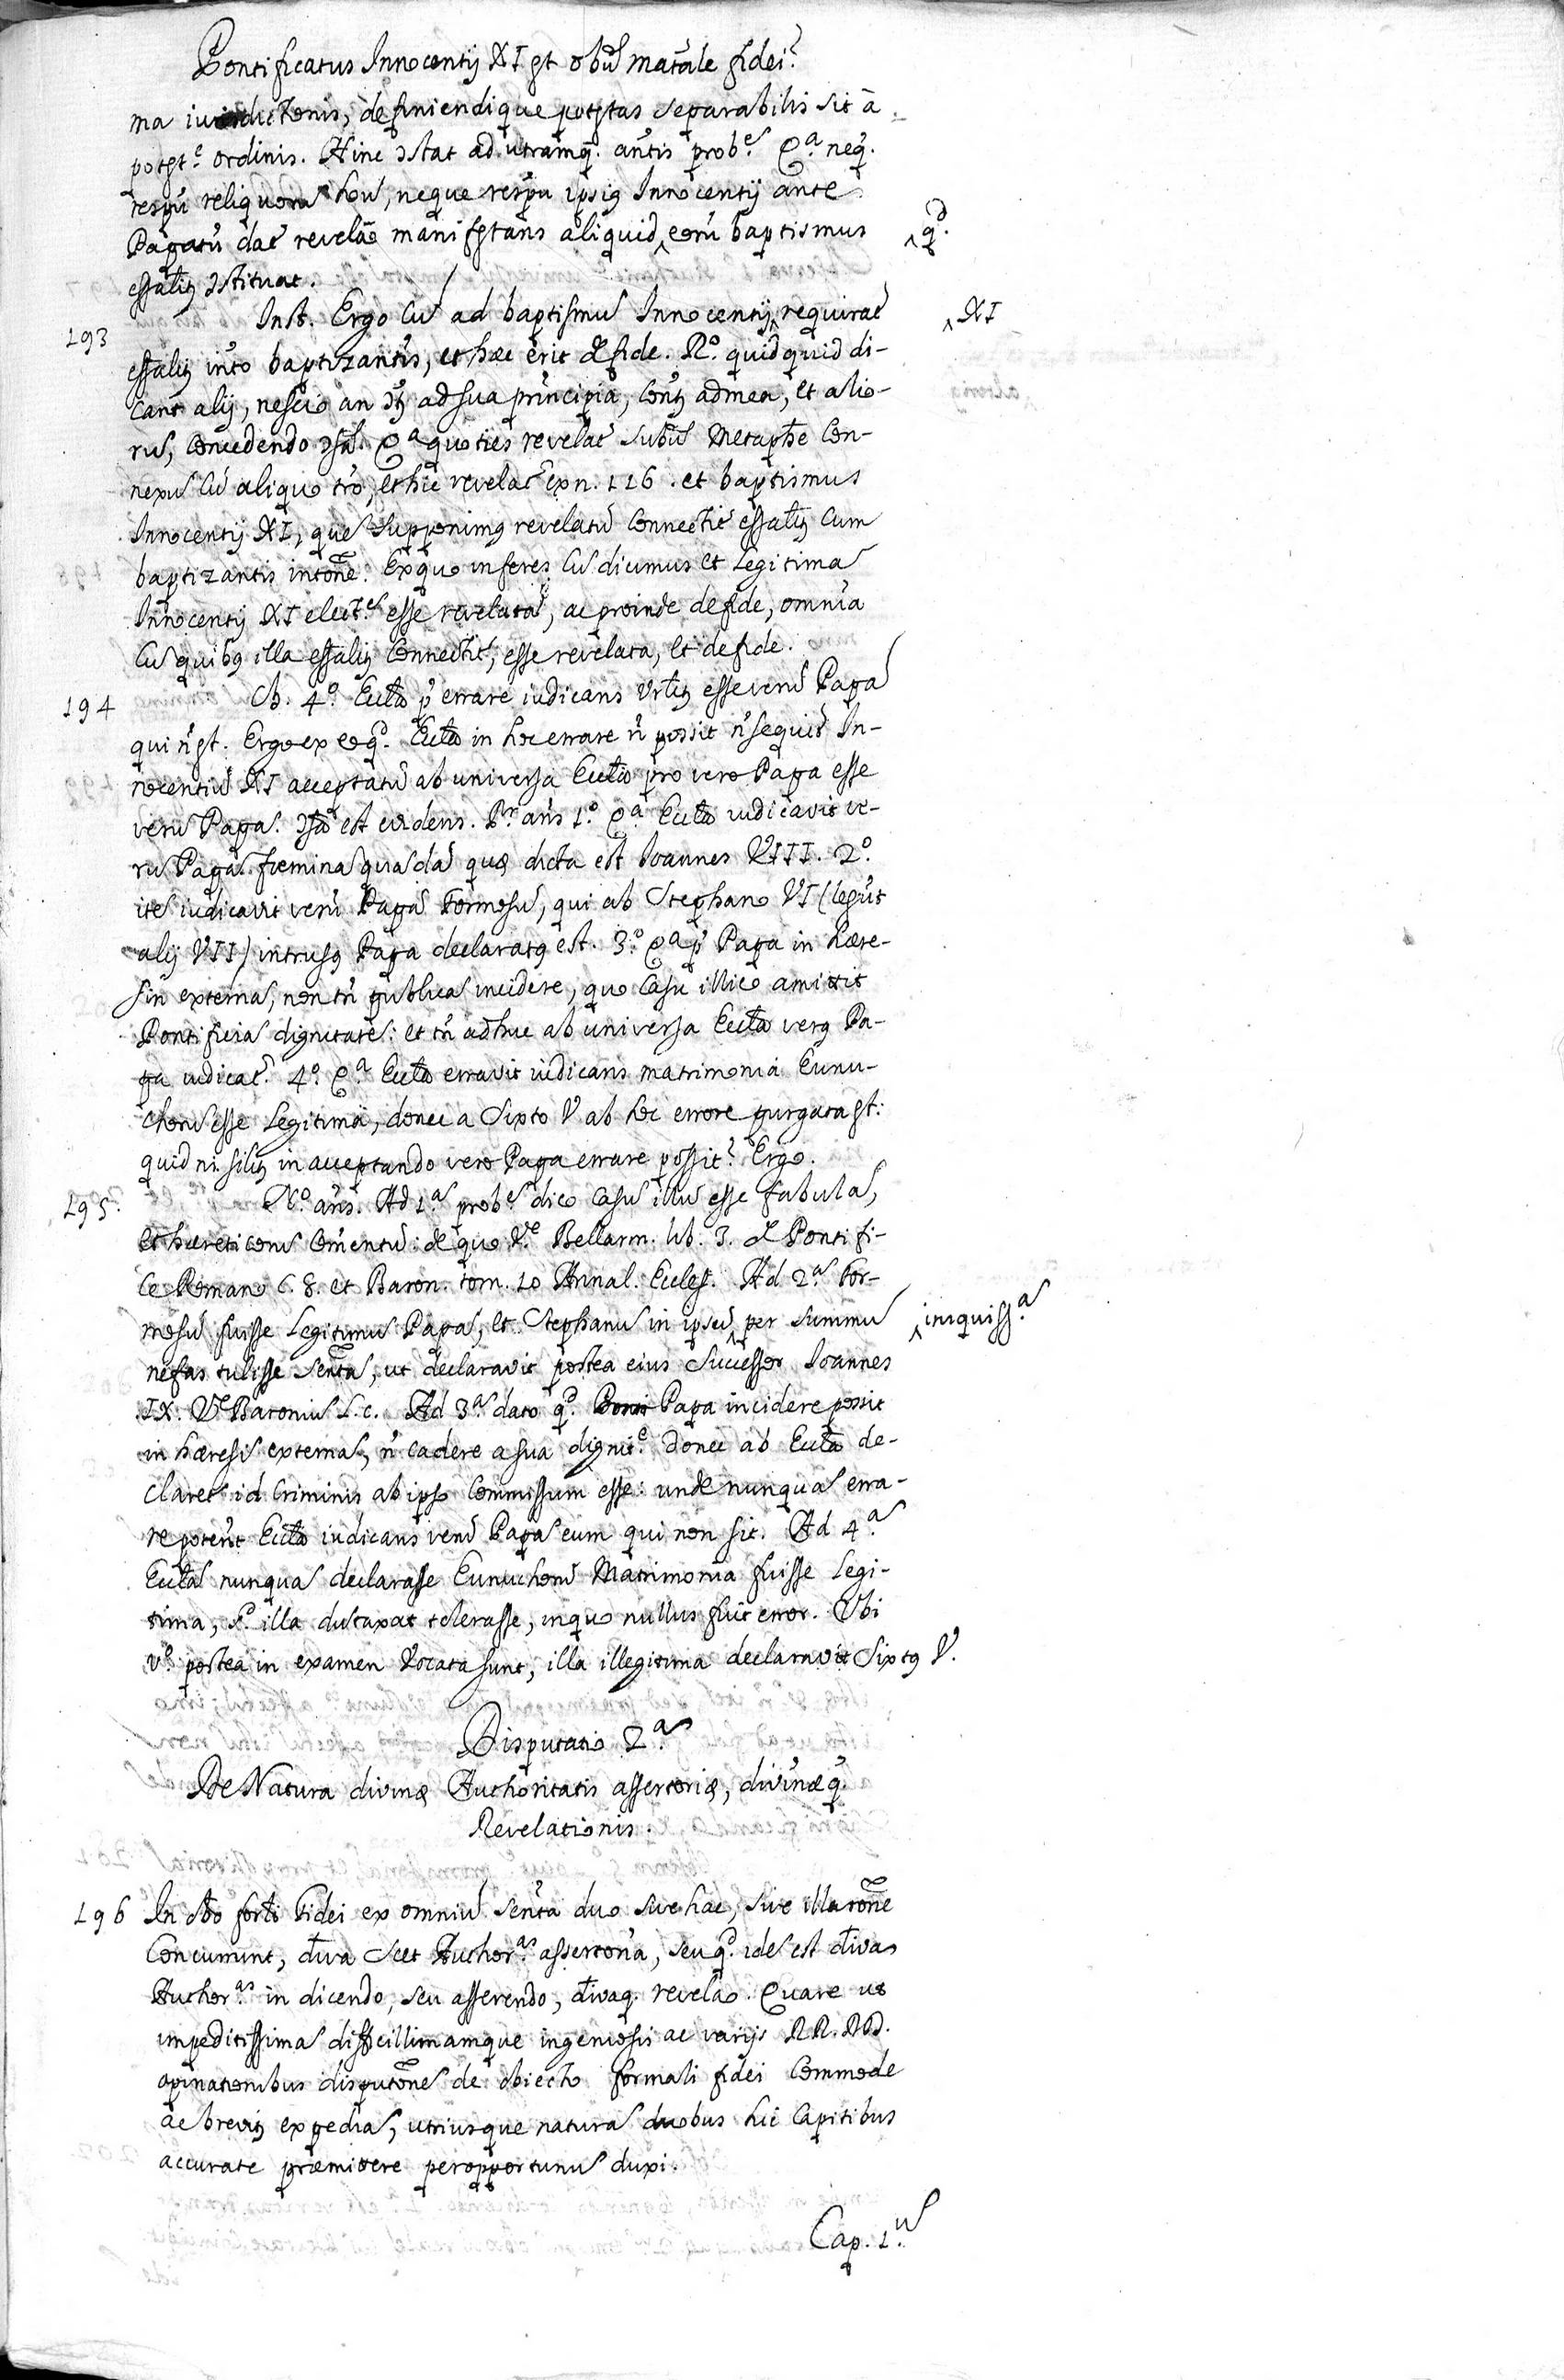 Pontificatus Innocentij XI gt obũ matãle fidei?
ma iurisdictionis, definiendique potgtas separabilis sit à
potgt.ᵉ ordinis. Hinc ɔstat ad utramq́. añtis prob.ᵉ Qᵃ neq́.
respũ reliquorũ hou, neque respũ ipsiꝯ Innocentij ante
Papatũ dat̃ revelão manifgtans aliquid ‸ eorũ baptismus
‸ q.ᵈ
essaliꝯ ɔstituat.
193 Inst. Ergo cũ ad baptismũ Innocentij ‸ requirat̃
‸ XI
essaliꝯ into baptizantis, et hæc erit de fide. R.º quidquid di-
cant alij, nescio an ɔtꝯ ad sua principia, conꝯ ad mea, et alio-
rũ, concedendo ɔsã. Qᵃ quoties revelat̃ subũ Metaphe con-
nexũ cũ aliquo tro, et hic revelat̃ ex n. 116. et baptismus
Innocentij XI, quẽ supponimꝯ revelatũ connectit̃ essaliꝯ cum
baptizantis intone. Ex quo inferes cũ dicimus et legitimã
Innocentij XI elect.ẽ esse revelatã, ac proinde de fide, omnia
cũ quibꝯ illa essaliꝯ connectit̃, esse revelata, et de fide.
194 Ob. 4.º Eccla p̃ errare iudicans Urtꝯ esse verũ Papã
qui ñ gt. Ergo ex eo q.ᵈ Eccla in hoc errare ñ possit ñ sequit̃ In-
nocentiũ XI acceptatũ ab universa Eccla pro vero Papa esse
verũ Papã. ɔsã est evidens. Pʳ. añs 1.º Qᵃ Eccla iudicavit ve-
rũ Papã fœminã quandã quæ dicta est Ioannes VIII. 2.º
itẽ iudicavit verũ Papã Formosũ, qui ab Stephano VI (legũt
alij VII) intrusꝯ Papa declaratꝯ est. 3.º Qᵃ p̃ Papa in hære-
sin externã, non tñ publicã incidere, quo casu illico amittit
Pontificiã dignitatẽ: et tñ adhuc ab universa Eccla verꝯ Pa-
pa iudicat̃. 4.º Qᵃ Eccla erravit iudicans matrimonia Eunu-
chorũ esse legitima, donec a Sixto V ab hoc errore purgata gt:
quid ni siliꝯ in acceptando vero Papa errare possit? Ergo.
195. N.º añs. Ad 1.ã prob.ẽ dico casũ illũ esse fabulã,
et hæreticorũ comentũ: de quo V.ᵉ Bellarm. lib. 3. de Pontifi-
ce Romano c. 8. et Baron. tom. 10 Annal. Eccles. Ad 2.ã For-
mosũ fuisse legitimũ Papã, et Stephanũ in ipsũ ‸ per summũ
‸ iniquiss.ᵃ
nefas tulisse sentã, ut declaravit postea eius successor Ioannes
IX. Vᵉ Baroniũ l. c. Ad 3.ã dato q.ᵈ Papa incidere possit
in hæresĩ externã, ñ cadere a sua dignit.ᵉ donec ab Eccla de-
claret̃ id criminis ab ipso commissum esse: unde nunquã erra-
re poterit Eccla iudicans verũ Papã eum qui non sit. Ad 4.ã
Ecclã nunquã declarasse Eunuchorũ Matrimonia fuisse legi-
tima, s.ᵈ illa dutaxat tolerasse, in quo nullus fuit error. Ubi
v.º postea in examen vocata sunt, illa illegitima declaravit Sixtꝯ V.
Disputatio 2.ᵃ
De Natura divinæ Authoritatis assertoriæ, divinæq́.
Revelationis.
196 In obo forli Fidei ex omniũ sentã duo sive hac, sive illa rone
concurrunt, diva scet Author.ᵃˢ assertoria, seu q.ᵈ idẽ est divas
Author.ᵃˢ in dicendo, seu asserendo, divaq. revelão. Quare ut
impeditissimã difficillimamque ingeniosis ac varijs RR. DD.
opinationibus disputonẽ de obiecto formali fidei commode
ac breviꝯ expediã, utriusque naturã duobus hic capitibus
accurate præmittere peropportunũ duxi.
Cap. 1.ũ